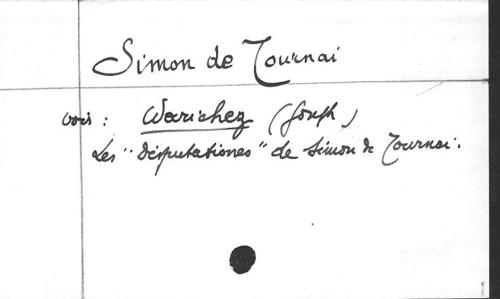 Simon de Tournai
voir : Warichez (Joseph)
Les "Disputationes" de Simon de Tournai.